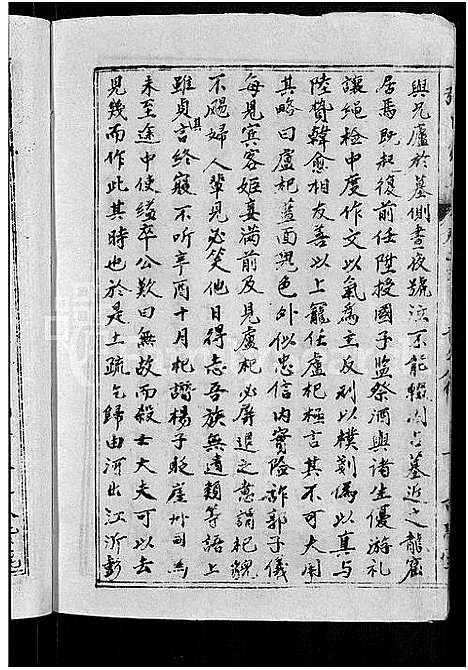 與兄廬於墓側晝夜號泣不能輟聞者墓近之龍窟
居焉既起復前任陞授國子監祭酒與諸生優游礼
讓繩檢中度作文以氣為主反刓以樸剗偽以真与
陸贄韓愈相友善以上寵任盧杞極言其不可大用
其略曰盧杞藍面鬼色外似忠信内實險詐郭子儀
每見賓客姬妾滿前及見盧杞必屏退之意謂杞貌
不颺婦人輩見必笑他日得志吾族無遺類等語上
雖貞其言終寢不听辛酉十月杞譖楊子貶崖州司馬
未至途中使縊卒公歎曰無故而殺士大夫可以去
見幾而作此其時也於是土疏乞歸由河出江泝彭